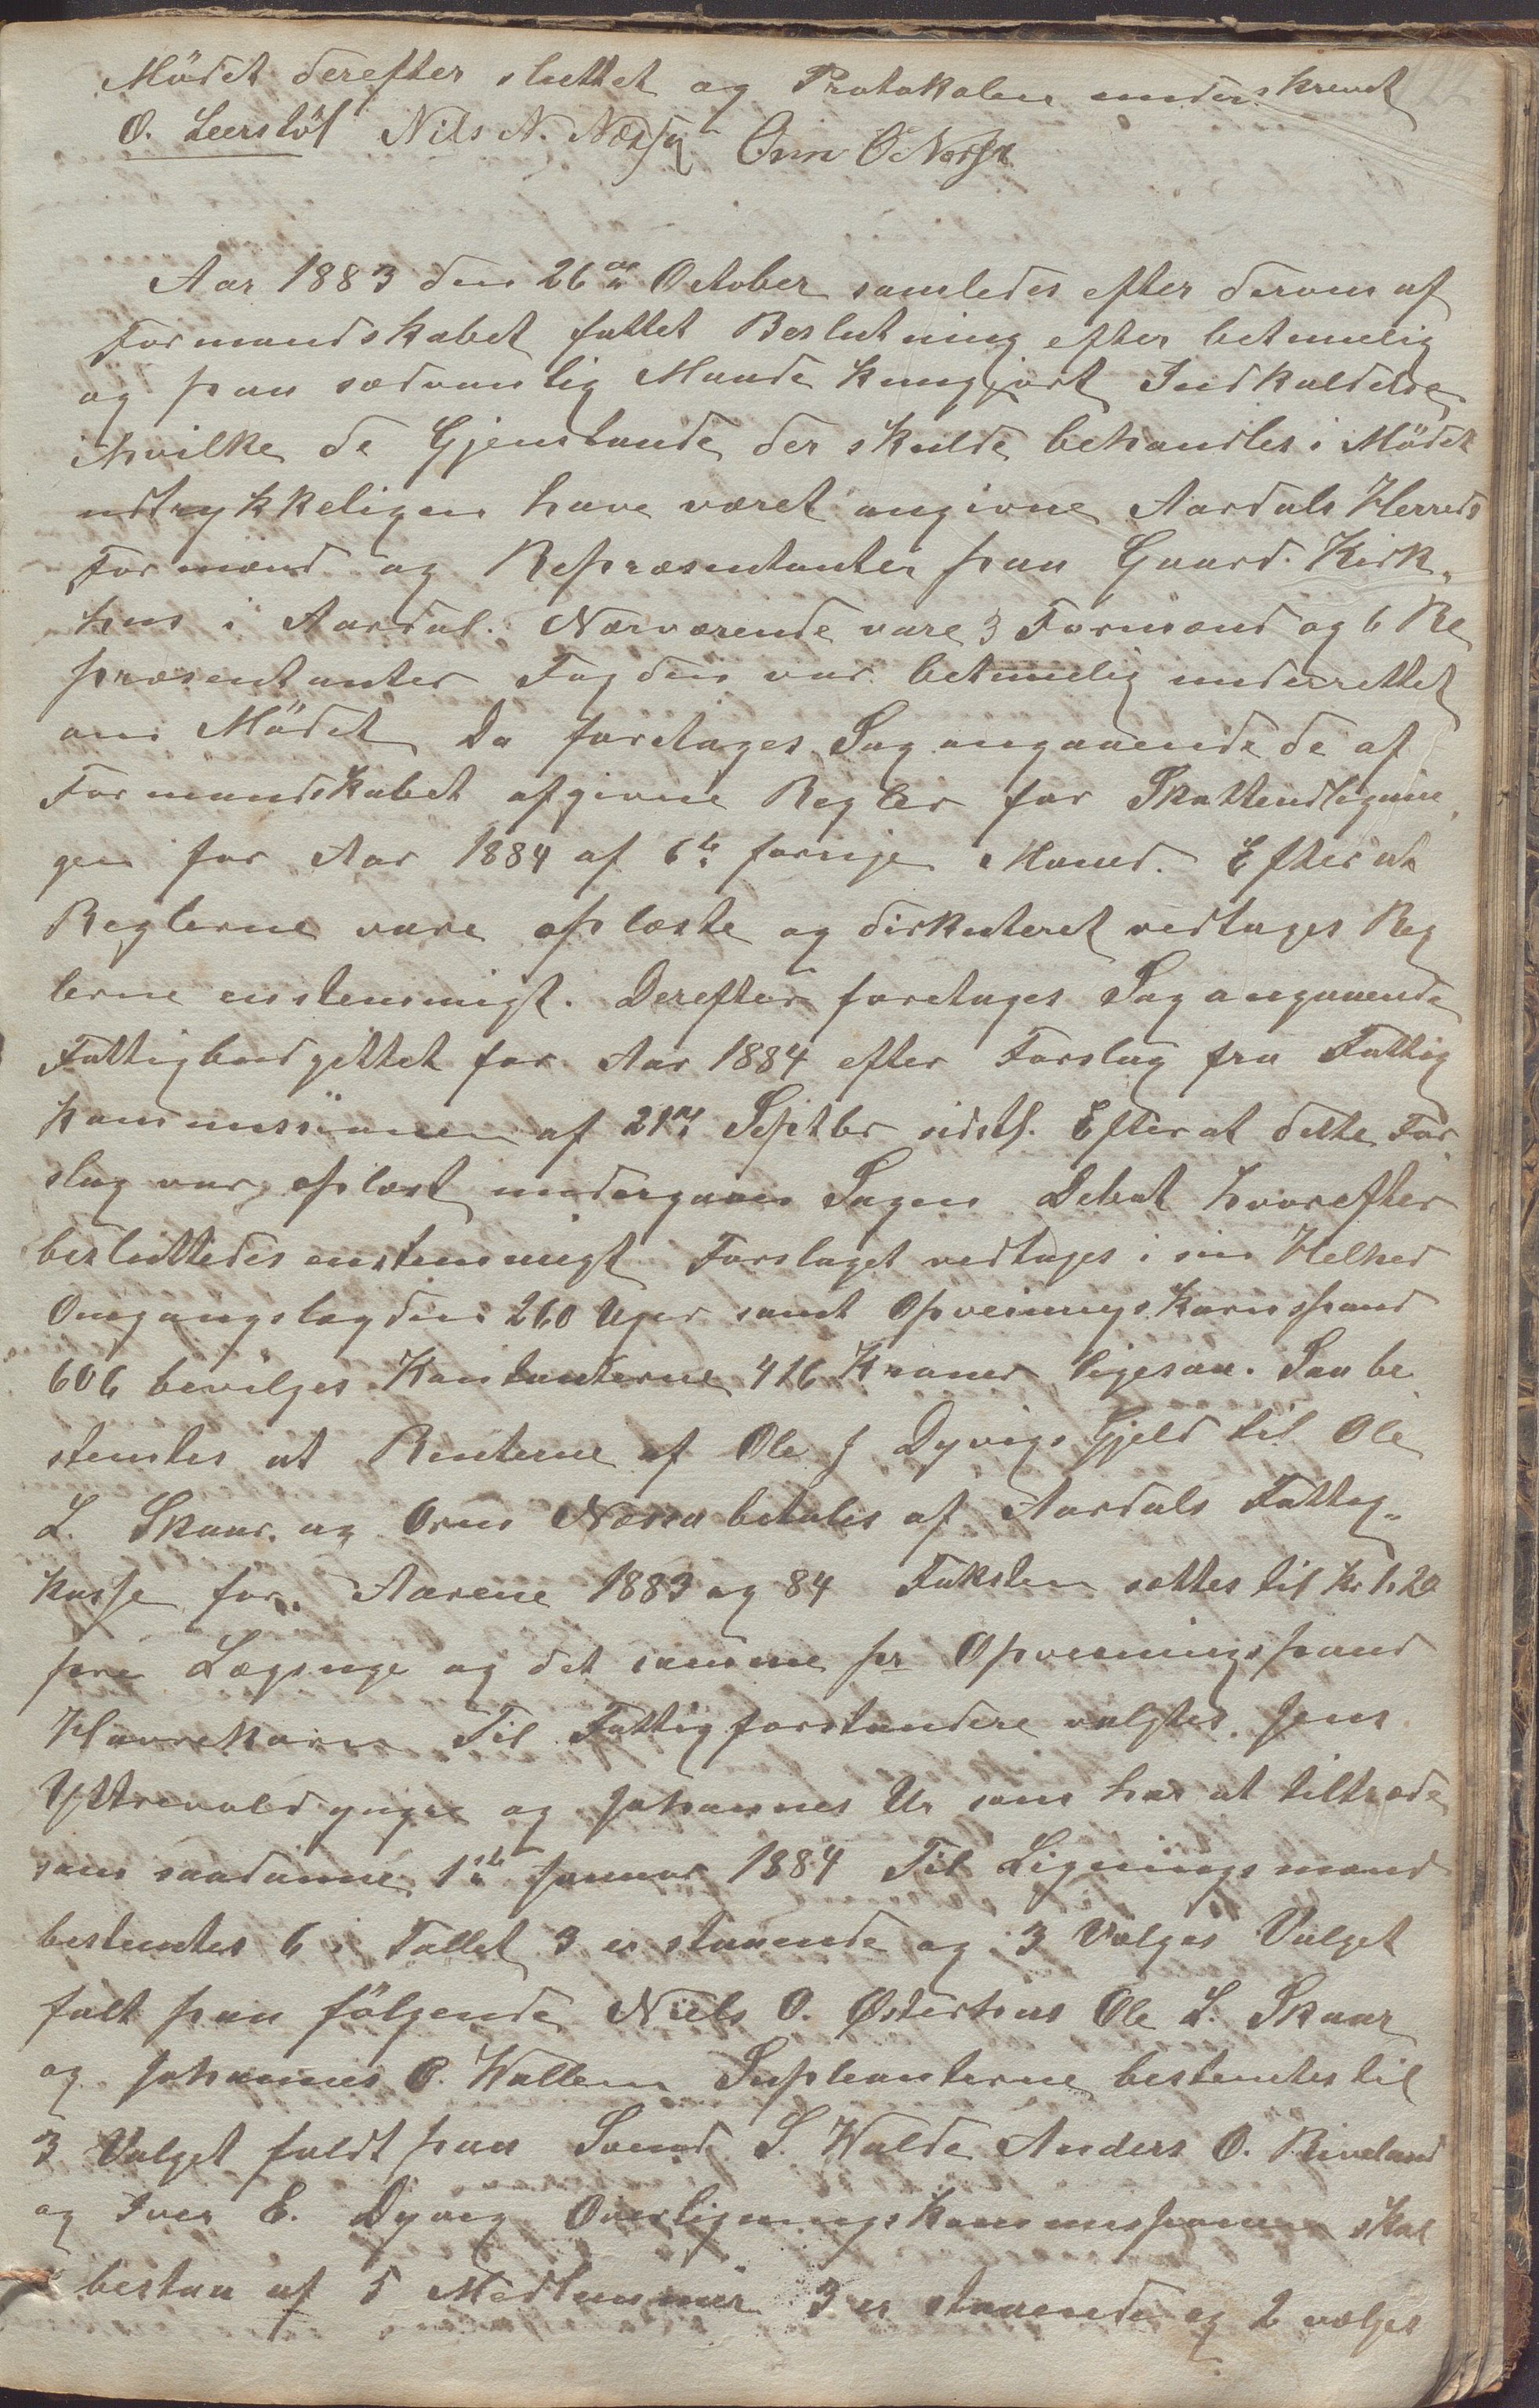 Mødet derefter sluttet og Protokolen underskrevet
O. Leerstøl Nils N. Næssa Orm O Nessa
Aar 1883 den 26de October samledes efter derom af
Formandskabet fattet Beslutning efter betimelig
og paa sædvanlig Maade kungjort Indkaldelse
ihvilke de Gjenstande der skulde behandles i Mødet
udtrykkeligen have været angivne Aardals Herreds
Formænd og Repræsentanter paa Gaard. Kirk„
hus i Aardal. Nærværende vare 3 Formænd og 6 Re
præsentanter Fogden var betimelig underrettet
om Mødet Da foretages Sag angaaende de af
Formandskabet afgivne Regler for Skatteudlignin„
gen for Aar 1884 af 6te forrige Maned. Efter at
Reglerne vare oplæste og diskuteret vedtages Reg
lerne enstemmigt. Derefter foretages Sag angaaende
Fattigbudgettet for Aar 1884 efter Forslag fra Fattig
kommissionen af 21de Septbr sidstl. Efter at dette For„
slag var oplæst undergaar Sagen Debat hvorefter
besluttedes enstemmigt Forslaget vedtages i sin Helhed
Omgangslægden 260 Uger samt Opveiningskornspand
606 bevilges Kontanterne 416 Kroner ligesaa. Saa be„
stemtes at Renterne af Ole J Dyvigs Gjeld til Ole
L. Skaar. og Orm Næssa betales af Aardals Fattig„
kasse for Aarene 1883 og 84 Taksten sættes til Kr 1,20
pre Lægsuge og det samme pr Opveiningspand
Havrekorn Til Fattigforstandere valgtes Jens
Yttrevold yngre og Johannes Ur som har at tiltræde
som saadanne 1ste Januar 1884 Til Ligningsmænd
bestemtes 6 i Tallet 3 er staaende og 3 Vælges Valget
falt paa følgende Niels O. Østerhus Ole L. Skaar
og Johannes O. Wallem Supleanterne bestemtes til
3 Valget faldt paa Svend S. Walde Anders O. Riveland
og Iver E. Dyvig Overligningskommissionen skal
bestaa af 5 Medlemmer 3 er staaende og 2 vælges